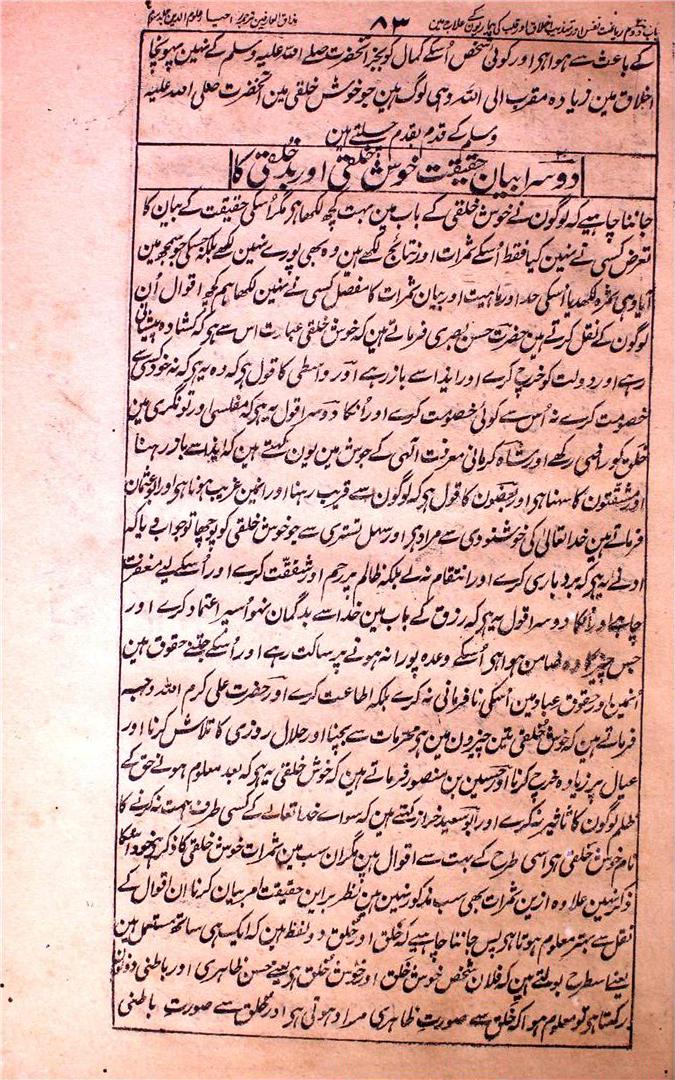 باب دوم ریاضت نفس اور تہذیب اخلاق اور قلب کی بیماریون کے علاج مین ۸۳ مذاق العارفین ترجمہ احیاء علوم الدین جلد سوم
کے باعث سے ہوا ہی اور کوئی شخص اُسکے کمال کو بجز آنحضرت صلے اللہ علیہ وسلم کے نہین پہونچا
اخلاق مین زیادہ مقرب الی اللہ وہی لوگ ہین جو خوش خلقی مین آنحضرت صلی اللہ علیہ
وسلم کے قدم بقدم چلتے ہین
دوسرا بیان حقیقت خوش خلقی اور بد خلقی کا
جاننا چاہیے کہ لوگون نے خوش خلقی کے باب مین بہت کچھ لکھا ہی مگر اُسکی حقیقت کے بیان کا
تعرض کسی نے نہین کیا فقط اُسکے ثمرات اور نتائج لکھے ہین وہ بھی پورے نہین لکھے بلکہ جسکی جو سمجھ مین
آیا وہی ثمرہ لکھدیا اُسکی حد اور ماہیت اور بیان ثمرات کا مفصل کسی نے نہین لکھا ہم کچھ اقوال اُن
لوگون کے نقل کرتے ہین حضرت حسن بصری فرماتے ہین کہ خوش خلقی عبارت اس سے ہی کہ کشادہ پیشانی
رہے اور دولت کو خرچ کرے اور ایذا سے باز رہے اور واسطی کا قول ہی کہ وہ یہ ہی کہ نہ خود کسی سے
خصومت کرے نہ اُس سے کوئی خصومت کرے اور اُنکا دوسرا قول یہ ہی کہ مفلسی اور تونگری مین
خلق کو راضی رکھے اور شاہ کرمانی معرفت الٰہی کے جوش مین یون کہتے ہین کہ ایذا سے باز رہنا
اور مشقتون کا سہنا ہی اور بعضون کا قول ہی کہ لوگون سے قریب رہنا اور انمین غریب ہونا ہی اور ابو عثمان
فرماتے ہین خدا تعالیٰ کی خوشنودی سے مراد ہی اور سہل تستری سے جو خوش خلقی کو پوچھا تو جواب دیا کہ
ادنےٰ یہ ہی کہ بردباری کرے اور انتقام نہ لے بلکہ ظالم پر رحم اور شفقت کرے اور اُسکے لیے مغفرت
چاہے اور اُنکا دوسرا قول یہ ہی کہ رزق کے باب مین خدا سے بدگمان نہو اُسپر اعتماد کرے اور
جس چیز کا وہ ضامن ہوا ہی اُسکے وعدہ پورا نہ ہونے پر ساکت رہے اور اُسکے جتنے حقوق ہین
اُنمین اور حقوق عباد مین اُسکی نافرمانی نہ کرے بلکہ اطاعت کرے اور حضرت علی کرم اللہ وجہہ
فرماتے ہین کہ خوش خلقی تین چیزون مین ہی محرمات سے بچنا اور حلال روزی کا تلاش کرنا اور
عیال پر زیادہ خرچ کرنا اور حسین بن منصور فرماتے ہین کہ خوش خلقی یہ ہی کہ بعد معلوم ہونے حق کے
ظلم لوگون کا تاثیر نہ کرے اور ابو سعید خراز کہتے ہین کہ سواے خدا تعالے کے کسی طرف ہمت نہ کرنے کا
نام خوش خلقی ہی اسی طرح کے بہت سے اقوال ہین مگر ان سب مین ثمرات خوش خلقی کا ذکر ہی خود اسکا
ذکر نہین علاوہ ازین ثمرات بھی سب مذکور نہین ہین نظر براین حقیقت امر بیان کرنا ان اقوال کے
نقل سے بہتر معلوم ہوتا ہی پس جاننا چاہیے کہ خَلق اور خُلق دو لفظ ہین کہ ایک ہی ساتھ مستعمل ہین
یعنے اسطرح بولتے ہین کہ فلان شخص خوش خَلق اور خوش خُلق ہی یعنے حسن ظاہری اور باطنی دونون
رکھتا ہی تو معلوم ہوا کہ خَلق سے صورت ظاہری مراد ہوتی ہی اور خُلق سے صورت باطنی